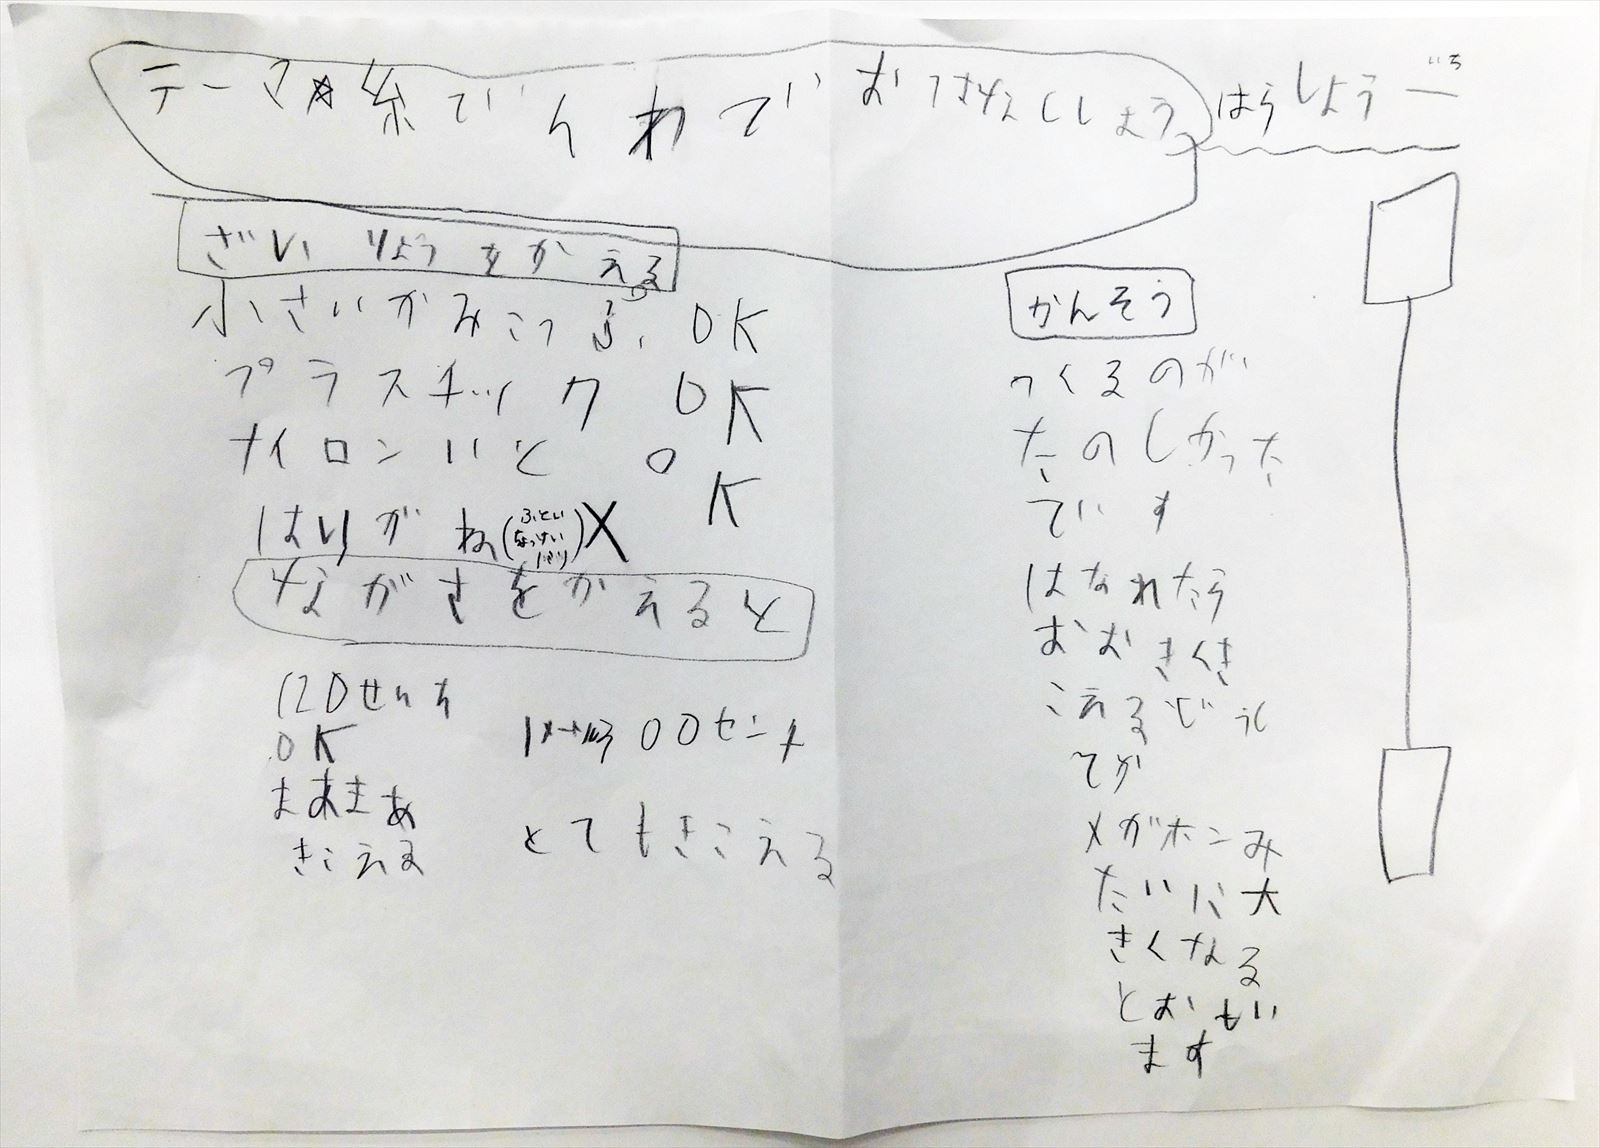 テーマ☆糸でんわでおはなししよう
はらしょう一
いち
ざいりょうをかえる
小さいかみこっぷ OK
プラスチック OK
ナイロンいと OK
はりがね(ふとい
はり)X
ながさをかえると
120せんち
OK
まあまあ
きこえる
00センチ
とてもきこえる
かんそう
つくるのが
たのしかった
です
はなれたら
おおきくき
こえる
メガホンみ
たいに大
きくなる
とおもい
ます